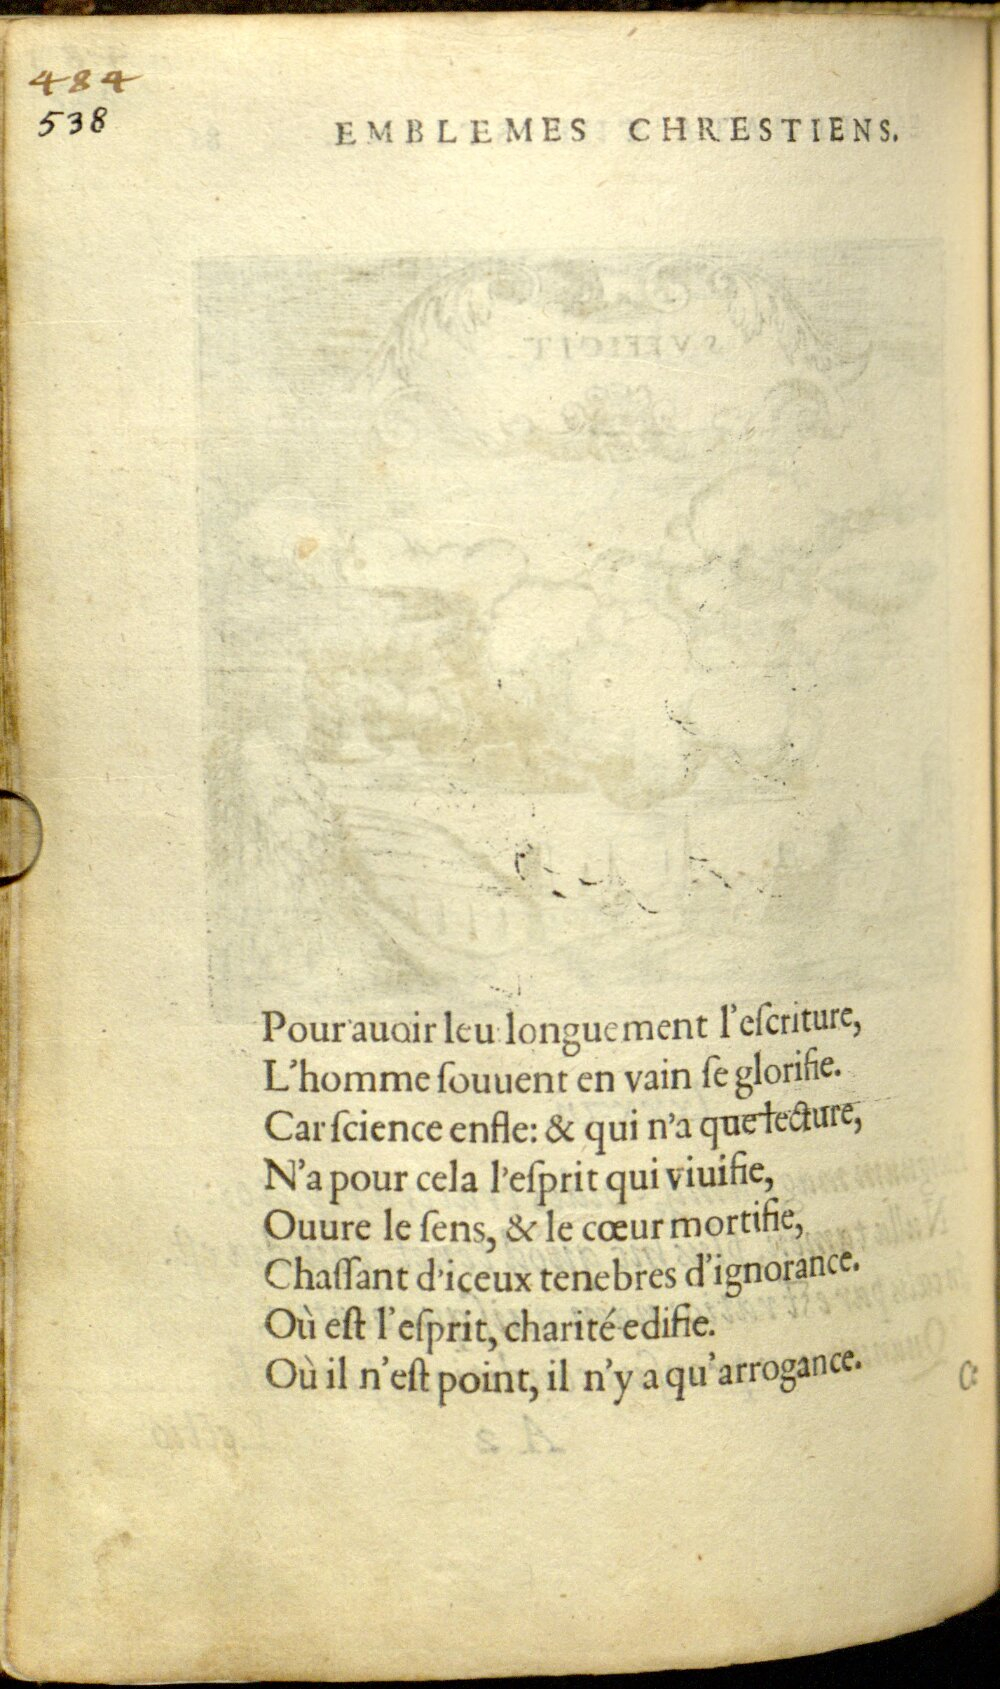 484
538
EMBLEMES CHRESTIENS.
SVFFICIT.
Pour auoir leu longuement l'eſcriture,
L'homme ſouuent en vain ſe glorifie.
Car ſcience enfle: & qui n'a que lecture,
N'a pour cela l'eſprit qui viuifie,
Ouure le ſens, & le cœur mortifie,
Chaſſant d'iceux tenebres d'ignorance.
Où eſt l'eſprit, charité edifie.
Où il n'eſt point, il n'y a qu'arrogance.
A 2